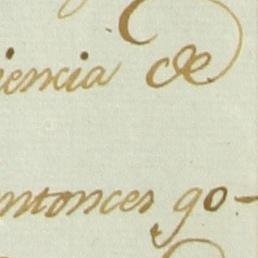 iencia de
ntonces go-